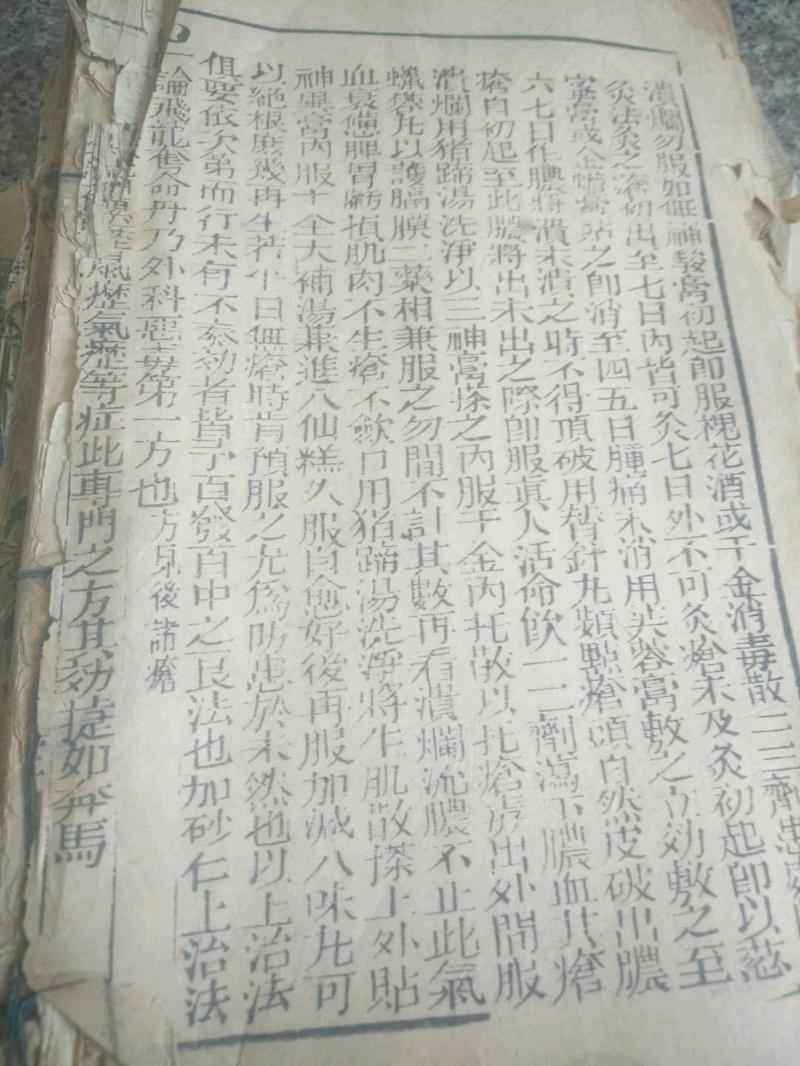 潰爛勿服如無神驗膏初起卽服槐花酒或千金消毒散二三劑患處
灸法灸之瘡初出至七日內皆可灸七日外不可灸瘡未及灸初起卽以葱
蜜膏或金箍膏貼之卽消至四五日腫痛未消用芙蓉膏敷之立効敷之至
六七日作膿將潰未潰之時不得頂破用替針丸類點瘡頭自然皮破出膿
瘡自初起至此膿將出未出之際卽服眞人活命飮一二劑瀉下膿血其瘡
潰爛用猪蹄湯洗淨以三神膏搽之內服千金內托散以托瘡毒出外間服
蠟礬丸以護膈膜二藥相兼服之勿間不計其數再看潰爛流膿不止此氣
血衰憊脾胃虧損肌肉不生瘡不歛口用猪蹄湯洗淨將生肌散搽上外貼
神異膏內服十全大補湯兼進八仙糕久服自愈好後再服加減八味丸可
以絕根庶幾再生若平日無瘡時肯預服之尤爲防患於未然也以上治法
俱要依次第而行未有不奏効者皆予百發百中之良法也加砂仁上治法
一論飛龍奪命丹乃外科惡毒第一方也方見後諸瘡
風癧氣癧等症此專門之方其効捷如奔馬